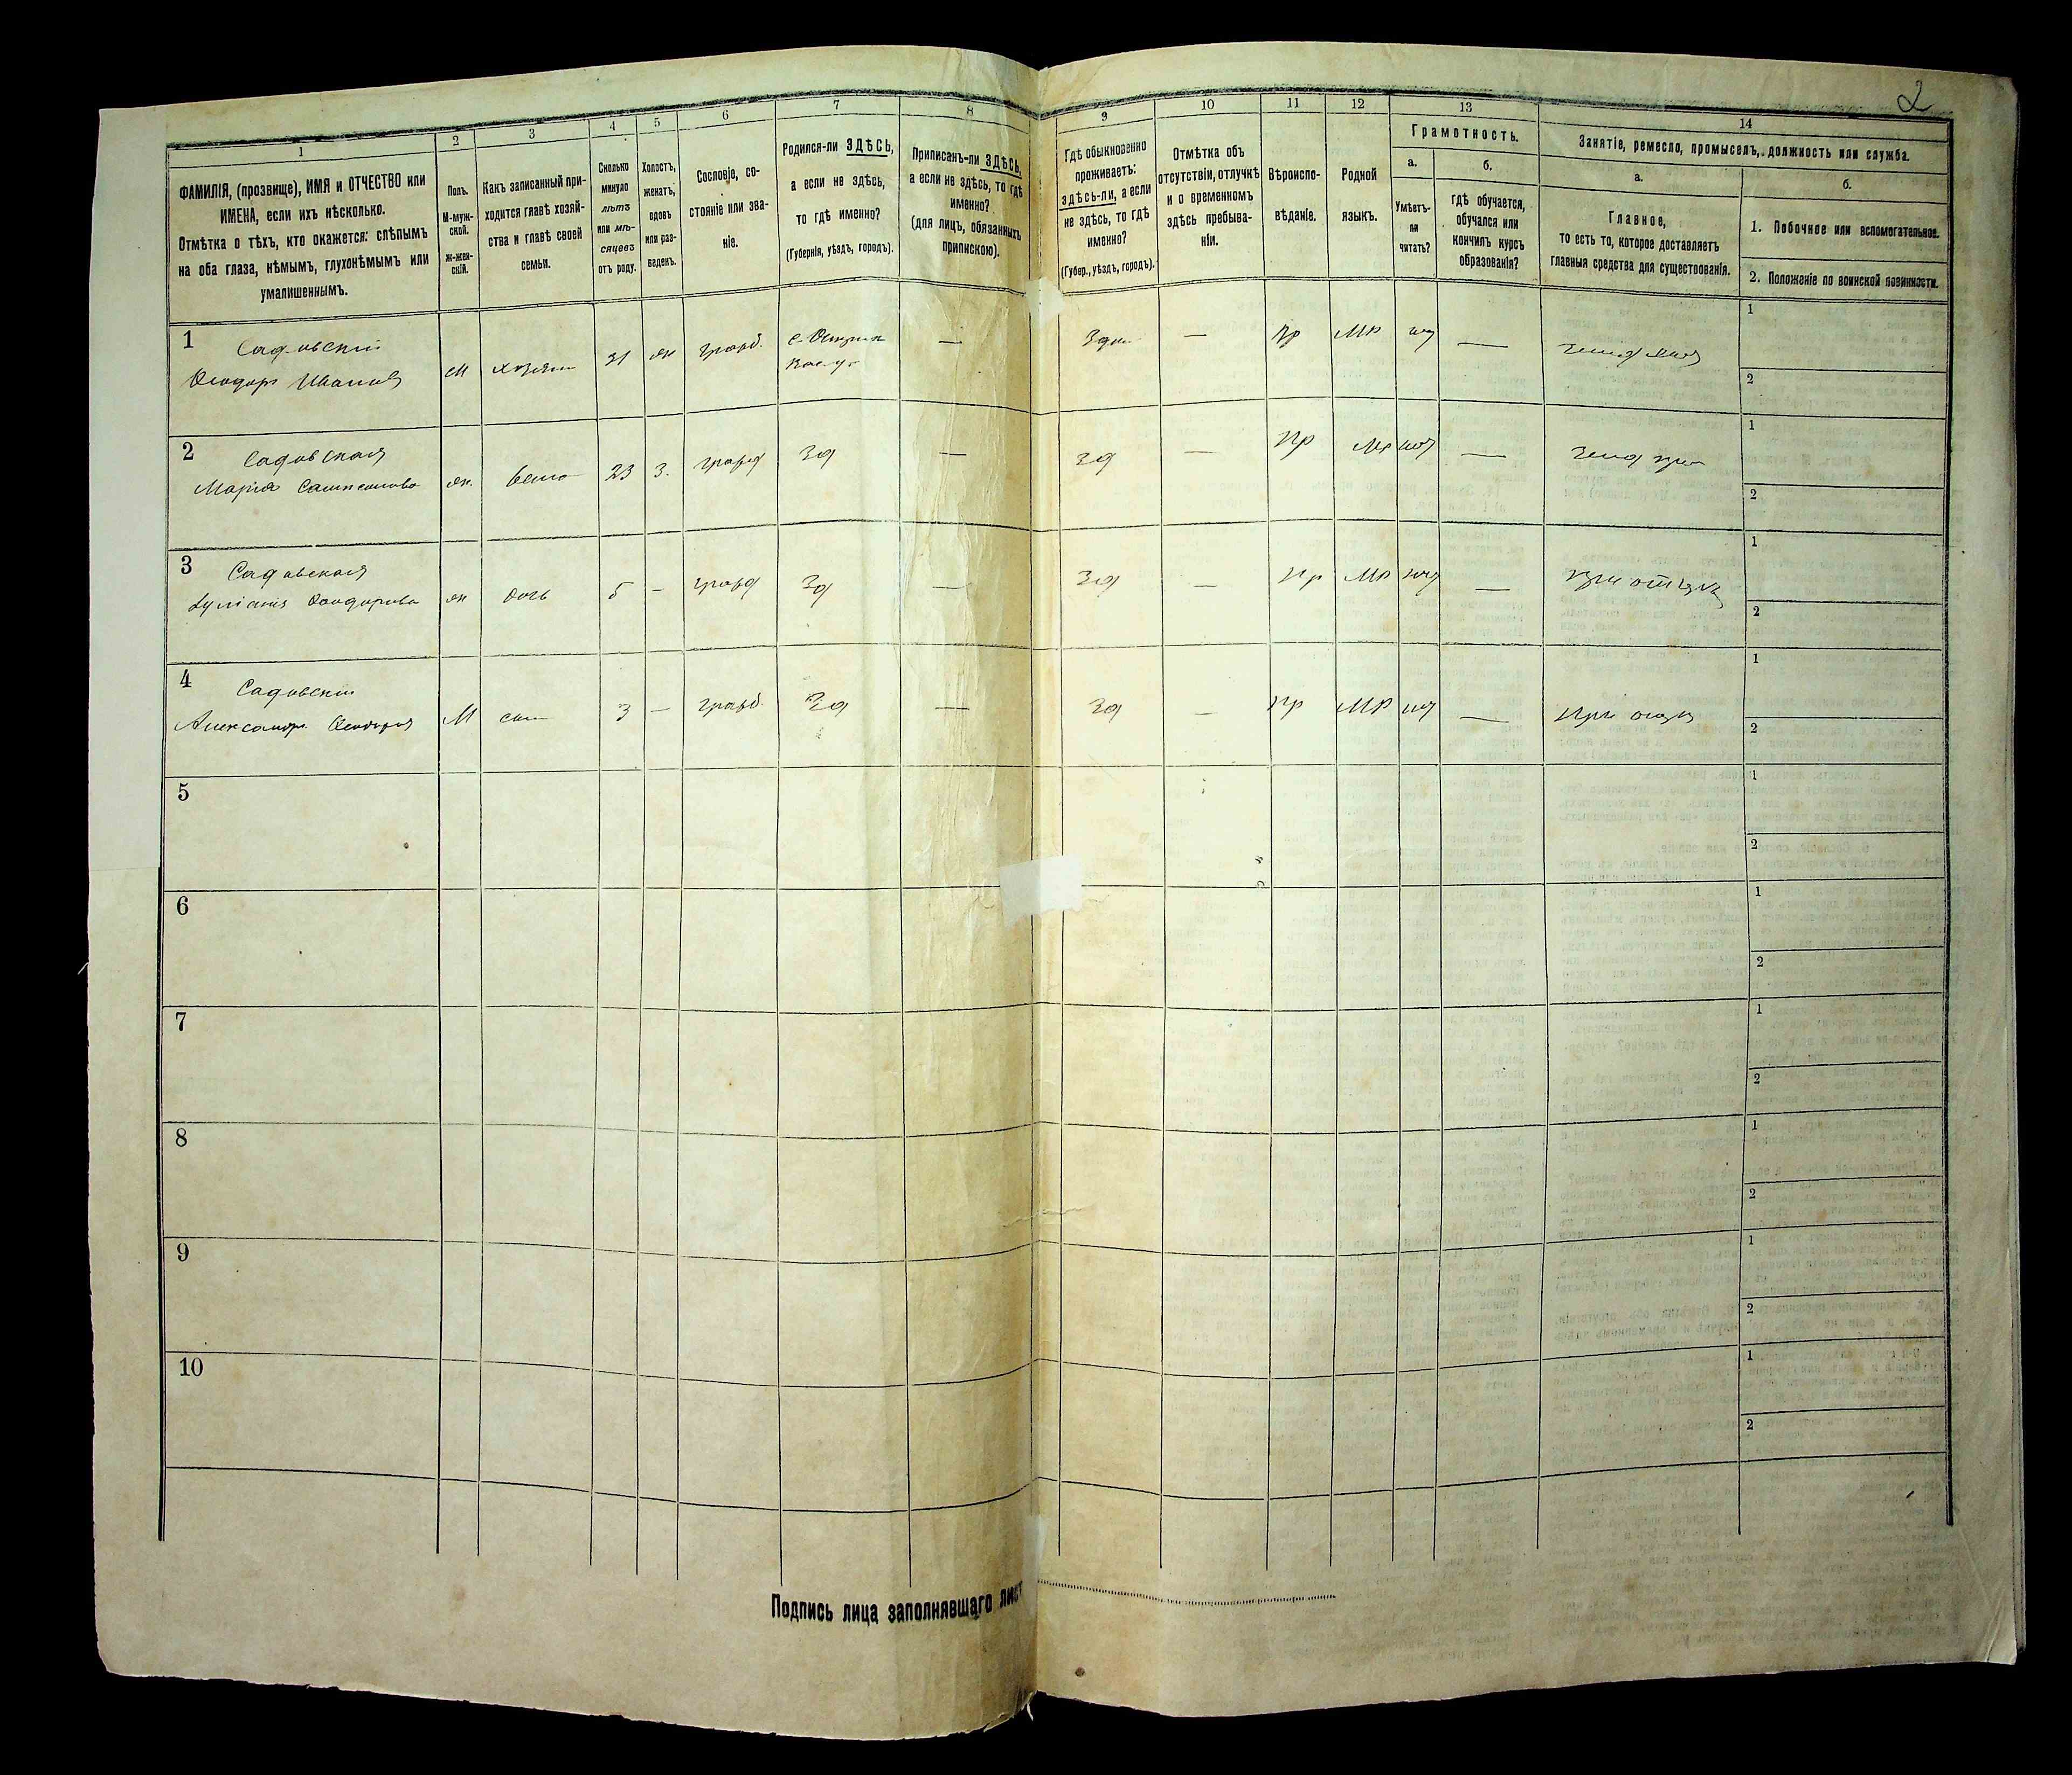 2
1
ФАМИЛІЯ, (прозвище), ИМЯ и ОТЧЕСТВО или
ИМЕНА, если ихъ нѣсколько.
Отмѣтка о тѣхъ, кто окажется: слѣпымъ
на оба глаза, нѣмымъ, глухонѣмымъ или
умалишеннымъ.
2
Полъ.
М-муж-
ской.
Ж-жен-
скій.
3
Какъ записанный при-
ходится главѣ хозяй-
ства и главѣ своей
семьи.
4
Сколько
минуло
лѣтъ
или мѣ-
сяцевъ
отъ роду.
5
Холостъ,
женатъ,
вдовъ
или раз-
веденъ.
6
Сословіе, со-
стояніе или зва-
ніе.
7
Родился-ли ЗДѢСЬ,
а если не здѣсь,
то гдѣ именно?
(Губернія, уѣздъ, городъ).
8
Приписанъ-ли ЗДѢСЬ,
а если не здѣсь, то гдѣ
именно?
(для лицъ, обязанныхъ
припискою).
9
Гдѣ обыкновенно
проживаетъ:
здѣсь-ли, а если
не здѣсь, то гдѣ
именно?
(Губер., уѣздъ, городъ).
10
Отмѣтка объ
отсутствіи, отлучкѣ
и о временномъ
здѣсь пребыва-
ніи.
11
Вѣроиспо-
вѣданіе.
12
Родной
языкъ.
13
Грамотность.
а.
Умѣетъ-
ли
читать?
б.
гдѣ обучается,
обучался или
кончилъ курсъ
образованія?
14
Занятіе, ремесло, промыселъ, должность или служба.
а.
Главное,
то есть то, которое доставляетъ
главныя средства для существованія.
б.
1. Побочное или вспомогательное.
2. Положеніе по воинской повинности.
1 Садовскій
Ѳеодоръ Ивановъ
М
хозяин
31
жн
гражд.
—
Здѣ
—
Пр
МР
1
2
2 Садовская
Марія
жн.
23
З.
гражд
Зд
—
Зд
—
Пр
МР
1
2
3 Садовская
Ѳеодорова
жн
дочь
5
—
гражд
Зд
—
Зд
—
Пр
МР
—
при отцѣ
1
2
4 Садовскій
Александръ Ѳеодоровъ
М
сын
3
—
гражд.
Зд
—
Зд
—
Пр
МР
—
При отцѣ
1
2
5
1
2
6
1
2
7
1
2
8
1
2
9
1
2
10
1
2
Подпись лица заполнявшаго лист